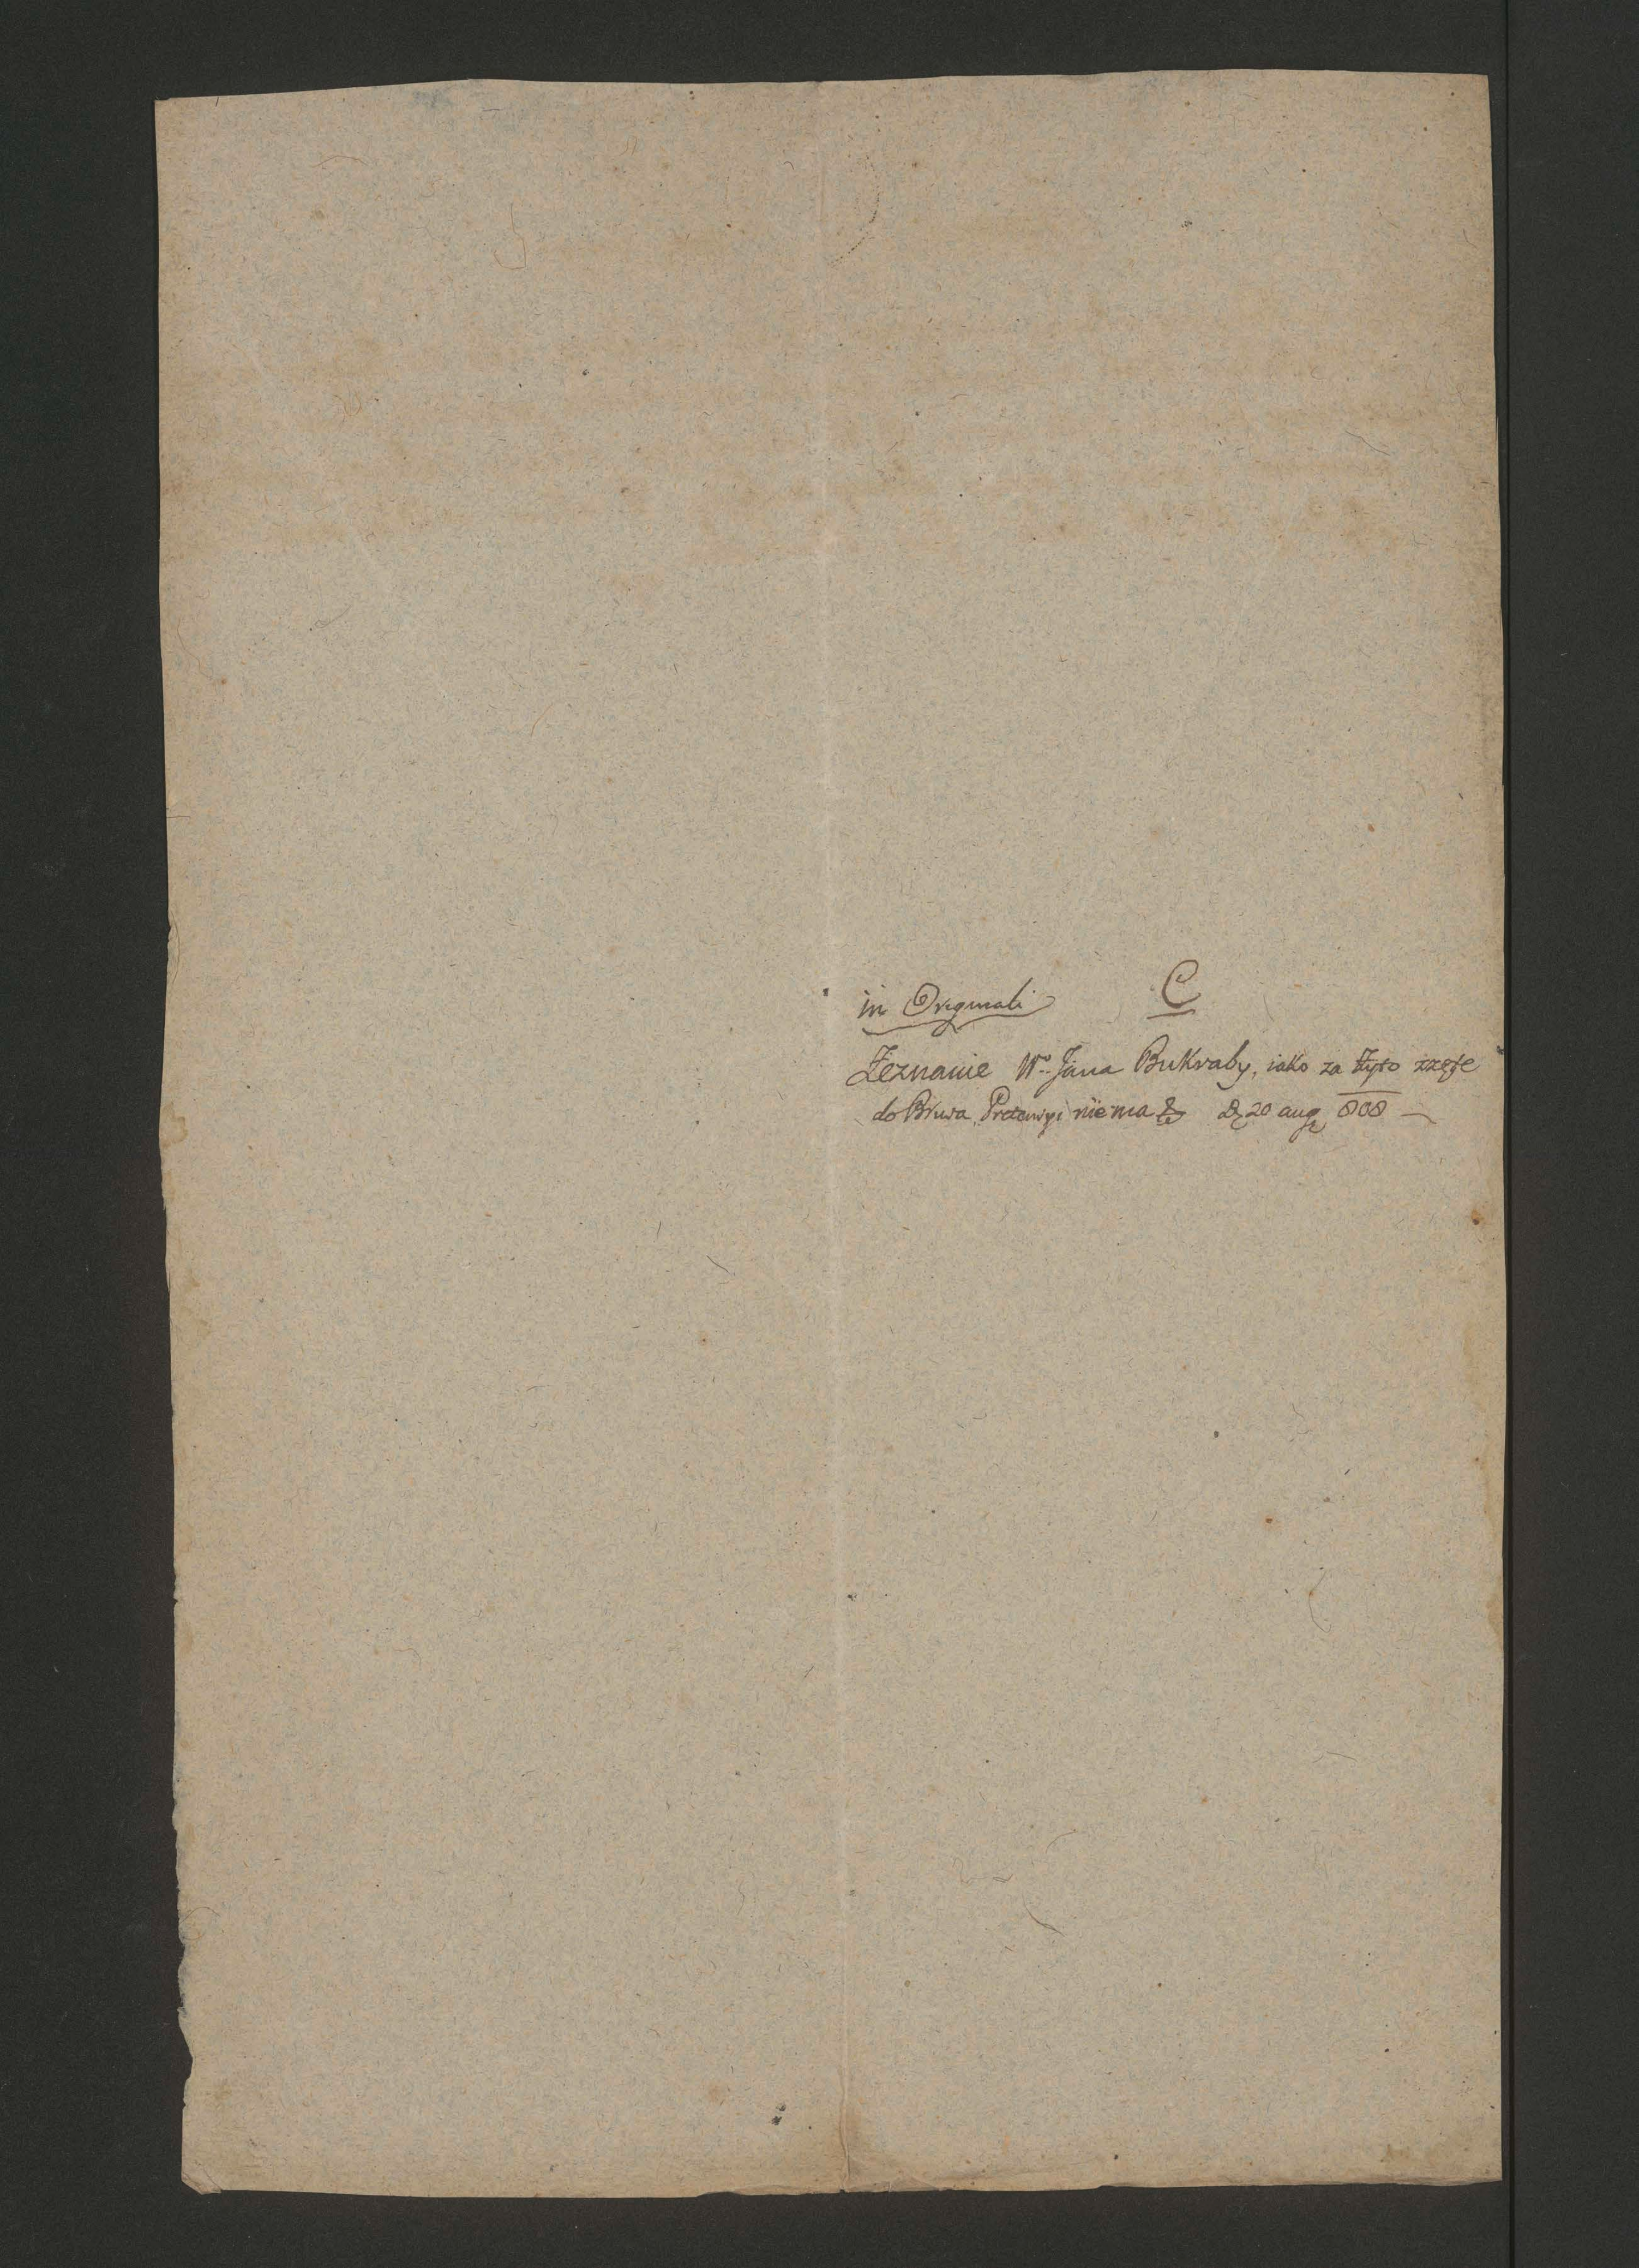 in Originali C
Zeznanie Wo Jana Bukraby, iako za żyto zzęte
do Brwa Pretensyi niema &c d. 20 aug 808